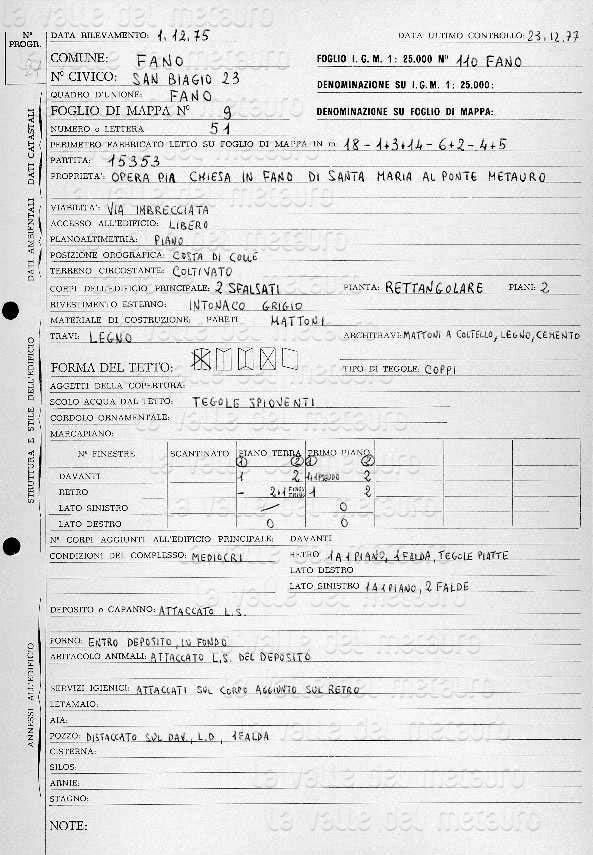 N°
PROGR.
DATA RILEVAMENTO: 1.12.75 DATA ULTIMO CONTROLLO: 23.12.77
COMUNE: FANO FOGLIO I.G.M. 1: 25.000 N° 110 FANO
N° CIVICO: SAN BIAGIO 23 DENOMINAZIONE SU I.G.M. 1: 25.000:
QUADRO D'UNIONE: FANO
FOGLIO DI MAPPA N° 9 DENOMINAZIONE SU FOGLIO DI MAPPA:
NUMERO o LETTERA 51
PERIMETRO FABBRICATO LETTO SU FOGLIO DI MAPPA IN m 18-1+3+14-6+2-4+5
PARTITA: 15353
PROPRIETA': OPERA PIA CHIESA IN FANO DI SANTA MARIA AL PONTE METAURO
DATI CATASTALI
VIABILITA': VIA IMBRECCIATA
ACCESSO ALL'EDIFICIO: LIBERO
PLANOALTIMETRIA: PIANO
POSIZIONE OROGRAFICA: COSTA DI COLLE
TERRENO CIRCOSTANTE: COLTIVATO
DATI AMBIENTALI
CORPI DELL'EDIFICIO PRINCIPALE: 2 SFALSATI PIANTA: RETTANGOLARE PIANI: 2
RIVESTIMENTO ESTERNO: INTONACO GRIGIO
MATERIALE DI COSTRUZIONE: PARETI MATTONI
TRAVI: LEGNO ARCHITRAVI: MATTONI A COLTELLO, LEGNO, CEMENTO
FORMA DEL TETTO: TIPO DI TEGOLE: COPPI
AGGETTI DELLA COPERTURA:
SCOLO ACQUA DAL TETTO: TEGOLE SPIOVENTI
CORDOLO ORNAMENTALE:
MARCAPIANO:
STRUTTURA E STILE DELL'EDIFICIO
N° FINESTRE SCANTINATO PIANO TERRA PRIMO PIANO
1 2 1 2
DAVANTI 1 2 2
RETRO - 2+1 1 2
LATO SINISTRO / 0
LATO DESTRO 0 0
N° CORPI AGGIUNTI ALL'EDIFICIO PRINCIPALE: DAVANTI
CONDIZIONI DEL COMPLESSO: MEDIOCRI RETRO 1 A 1 PIANO, 1 FALDA, TEGOLE PIATTE
LATO DESTRO
LATO SINISTRO 1 A 1 PIANO, 2 FALDE
DEPOSITO o CAPANNO: ATTACCATO L.S.
FORNO: ENTRO DEPOSITO, IN FONDO
ABITACOLO ANIMALI: ATTACCATO L.S. DEL DEPOSITO
SERVIZI IGIENICI: ATTACCATI SUL CORPO AGGIUNTO SUL RETRO
LETAMAIO:
AIA:
POZZO: DISTACCATO SUL DAV. L.D, 1 FALDA
CISTERNA:
SILOS:
ARNIE:
STAGNO:
ANNESSI ALL'EDIFICIO
NOTE:
la valle del metauro